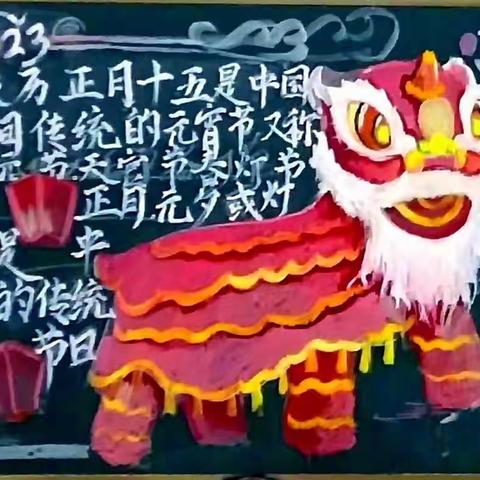 23
历正月十五是中国
间传统的元宵节又称
元节天官节春灯节
正月元夕或灯
是 中
的传统
节日